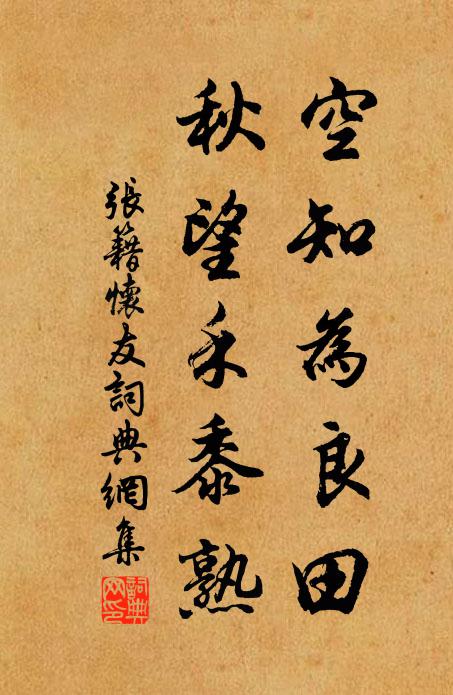 空知為良田
秋望禾黍熟
張籍懷友詞典網集
詞典網印